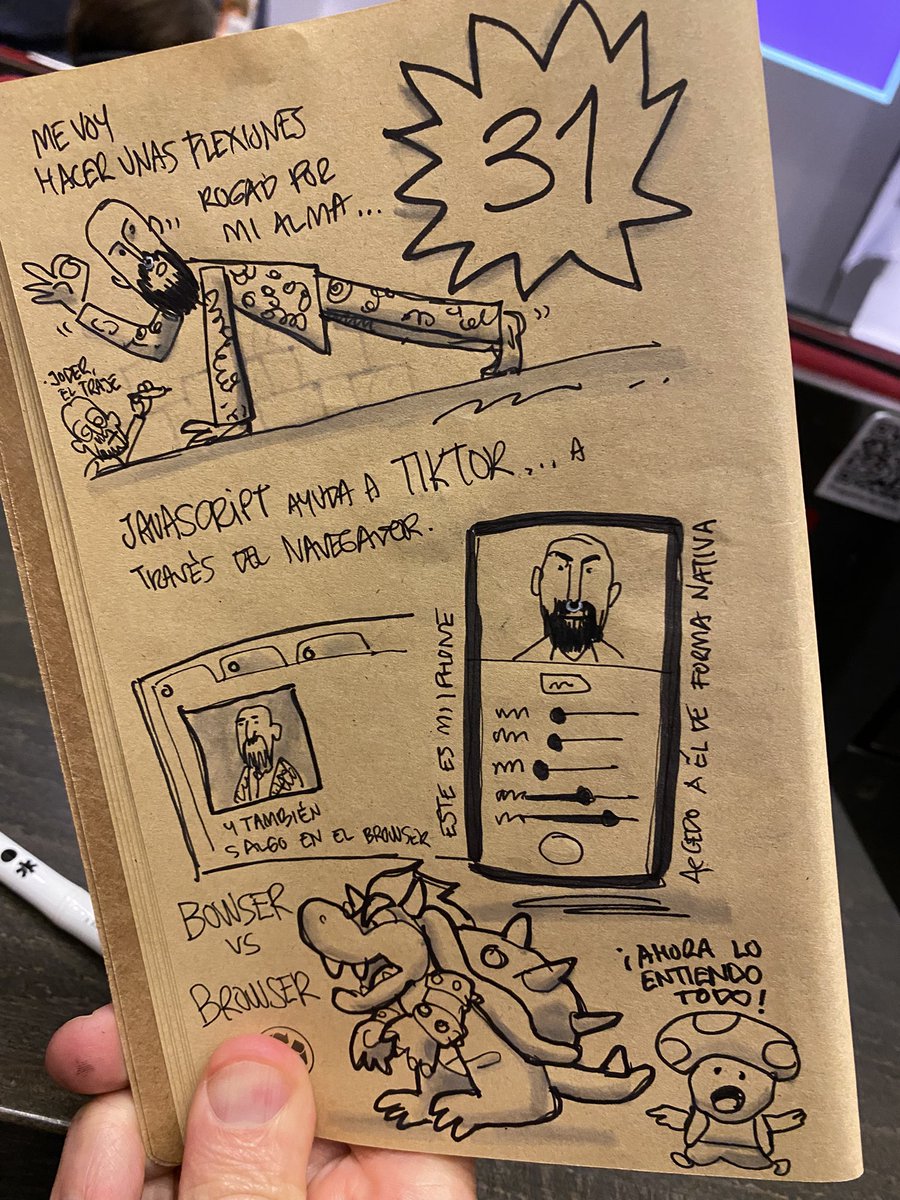 ME VOY
HACER UNAS FLEXIONES
ROGAD POR
MI ALMA...
31
JODER,
EL TRAJE
JAVASCRIPT AYUDA A TIKTOR... A
TRAVÉS DEL NAVEGADOR.
ESTE ES MI IPHONE
ACCEDO A ÉL DE FORMA NATIVA
Y TAMBIÉN
SALGO EN EL BROWSER
BOWSER
VS
BROWSER
¡AHORA LO
ENTIENDO
TODO!